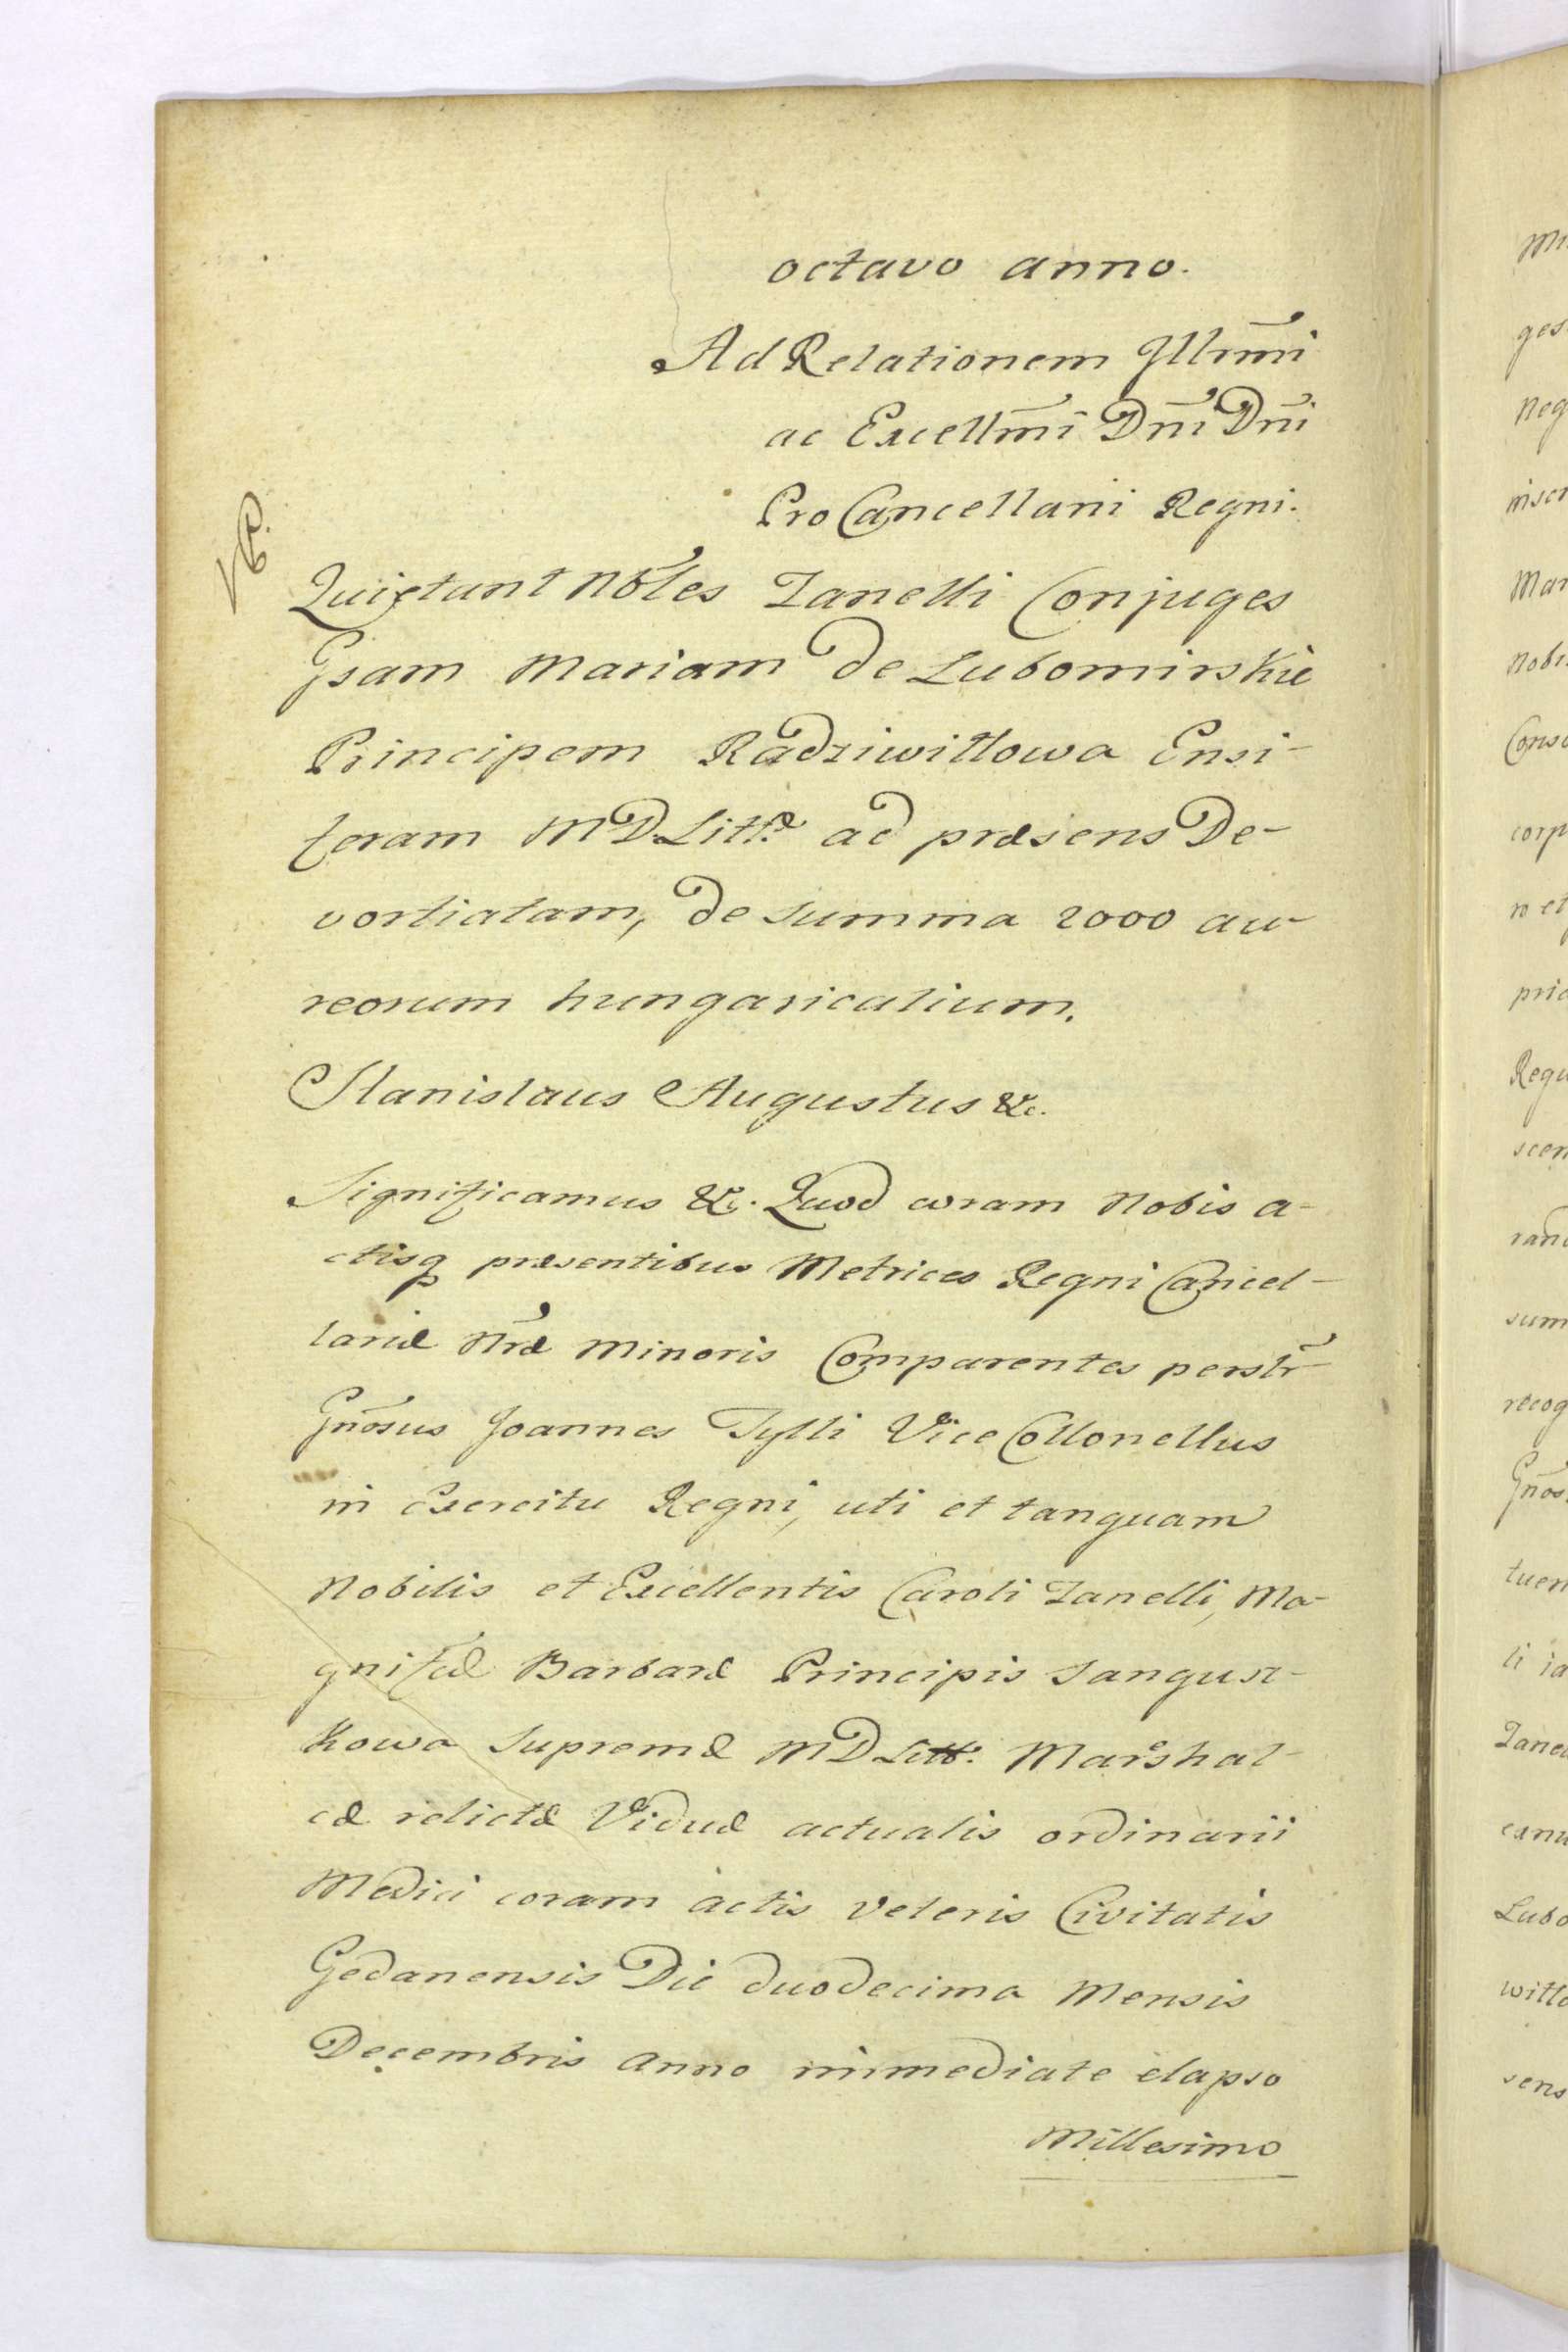 octavo anno.
Ad Relationem Illrm̃i
ac Excellm̃i Dn̄i Dn̄i
Pro Cancellarii Regni.
Quietant Nob̄les Zanelli Conjuges
Gsam Mariam de Lubomirskie
Principem Radziwiłłowa Ensi-
feram MD. Litt. ad præsens De-
vortiatam, de summa 2000 au-
reorum hungaricalium.
Stanislaus Augustus &c.
Significamus &c. Quod coram Nobis a-
ctisq præsentibus Metrices Regni Cancel-
lariæ Nr̄æ Minoris Comparentes perstr̄
Gnōsus Joannes Tylli Vice Collonellus
in Exercitu Regni, uti et tanquam
Nobilis et Excellentis Caroli Zanelli, Ma-
gnifcæ Barbaræ Principis Sangusz-
kowa Supremæ MD Litt. Marshal-
cæ relictæ Viduæ actualis ordinarii
Medici coram actis Veteris Civitatis
Gedanensis Die duodecima Mensis
Decembris Anno immediate elapso
Millesimo
Mi
ges
Neg
inscr
Mar
Nobi
Cons
corp
n et
pri
Regn
scen
sum
recog
Gnōs
tuen
li ia
Zane
Lubo
wiłło
sens